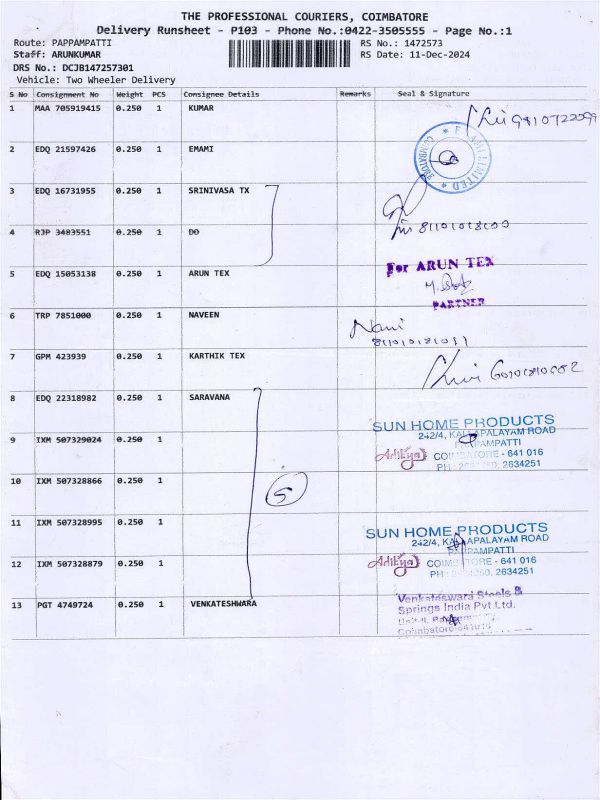 THE PROFESSIONAL COURIERS, COIMBATORE
Delivery Runsheet - P103 - Phone No.:0422-3505555 - Page No.:1
Route: PAPPAMPATTI RS No.: 1472573
Staff: ARUNKUMAR RS Date: 11-Dec-2024
DRS No.: DCJB147257301
Vehicle: Two Wheeler Delivery
S No Consignment No Weight PCS Consignee Details Remarks Seal & Signature
1 MAA 705919415 0.250 1 KUMAR
2 EDQ 21597426 0.250 1 EMAMI
EMAMI LIMITED
3 EDQ 16731955 0.250 1 SRINIVASA TX
4 RJP 3483551 0.250 1 DO
5 EDQ 15053138 0.250 1 ARUN TEX
For ARUN TEX
PARTNER
6 TRP 7851000 0.250 1 NAVEEN
7 GPM 423939 0.250 1 KARTHIK TEX
8 EDQ 22318982 0.250 1 SARAVANA
SUN HOME PRODUCTS
242/4, KALLAPALAYAM ROAD
9 IXM 507329024 0.250 1
PAPPAMPATTI
Aditya COIMBATORE - 641 016
2634251
10 IXM 507328866 0.250 1
5
11 IXM 507328995 0.250 1
SUN HOME PRODUCTS
242/4, KALLAPALAYAM ROAD
PAPPAMPATTI
12 IXM 507328879 0.250 1
Aditya COIMBATORE - 641 016
2634251
13 PGT 4749724 0.250 1 VENKATESHWARA
Venkateswara Steels &
Springs India Pvt.Ltd.
Coimbatore-641016